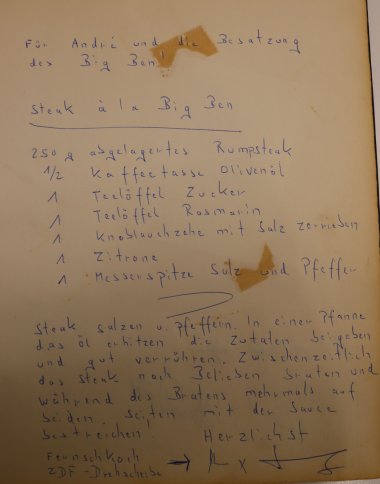 Für André und die Besatzung
des Big Ben!
Steak à la Big Ben
250 g abgelagertes Rumpsteak
1/2 Kaffeetasse Olivenöl
1 Teelöffel Zucker
1 Teelöffel Rosmarin
1 Knoblauchzehe mit Salz zerrieben
1 Zitrone
1 Messerspitze Salz und Pfeffer
Steak salzen u. pfeffern. In einer Pfanne
das Öl erhitzen die Zutaten beigeben
und gut verrühren. Zwischenzeitlich
das Steak nach Belieben braten und
während des Bratens mehrmals auf
beiden Seiten mit der Sauce
bestreichen!
Herzlichst
Fernschkoch
ZDF-Drehscheibe